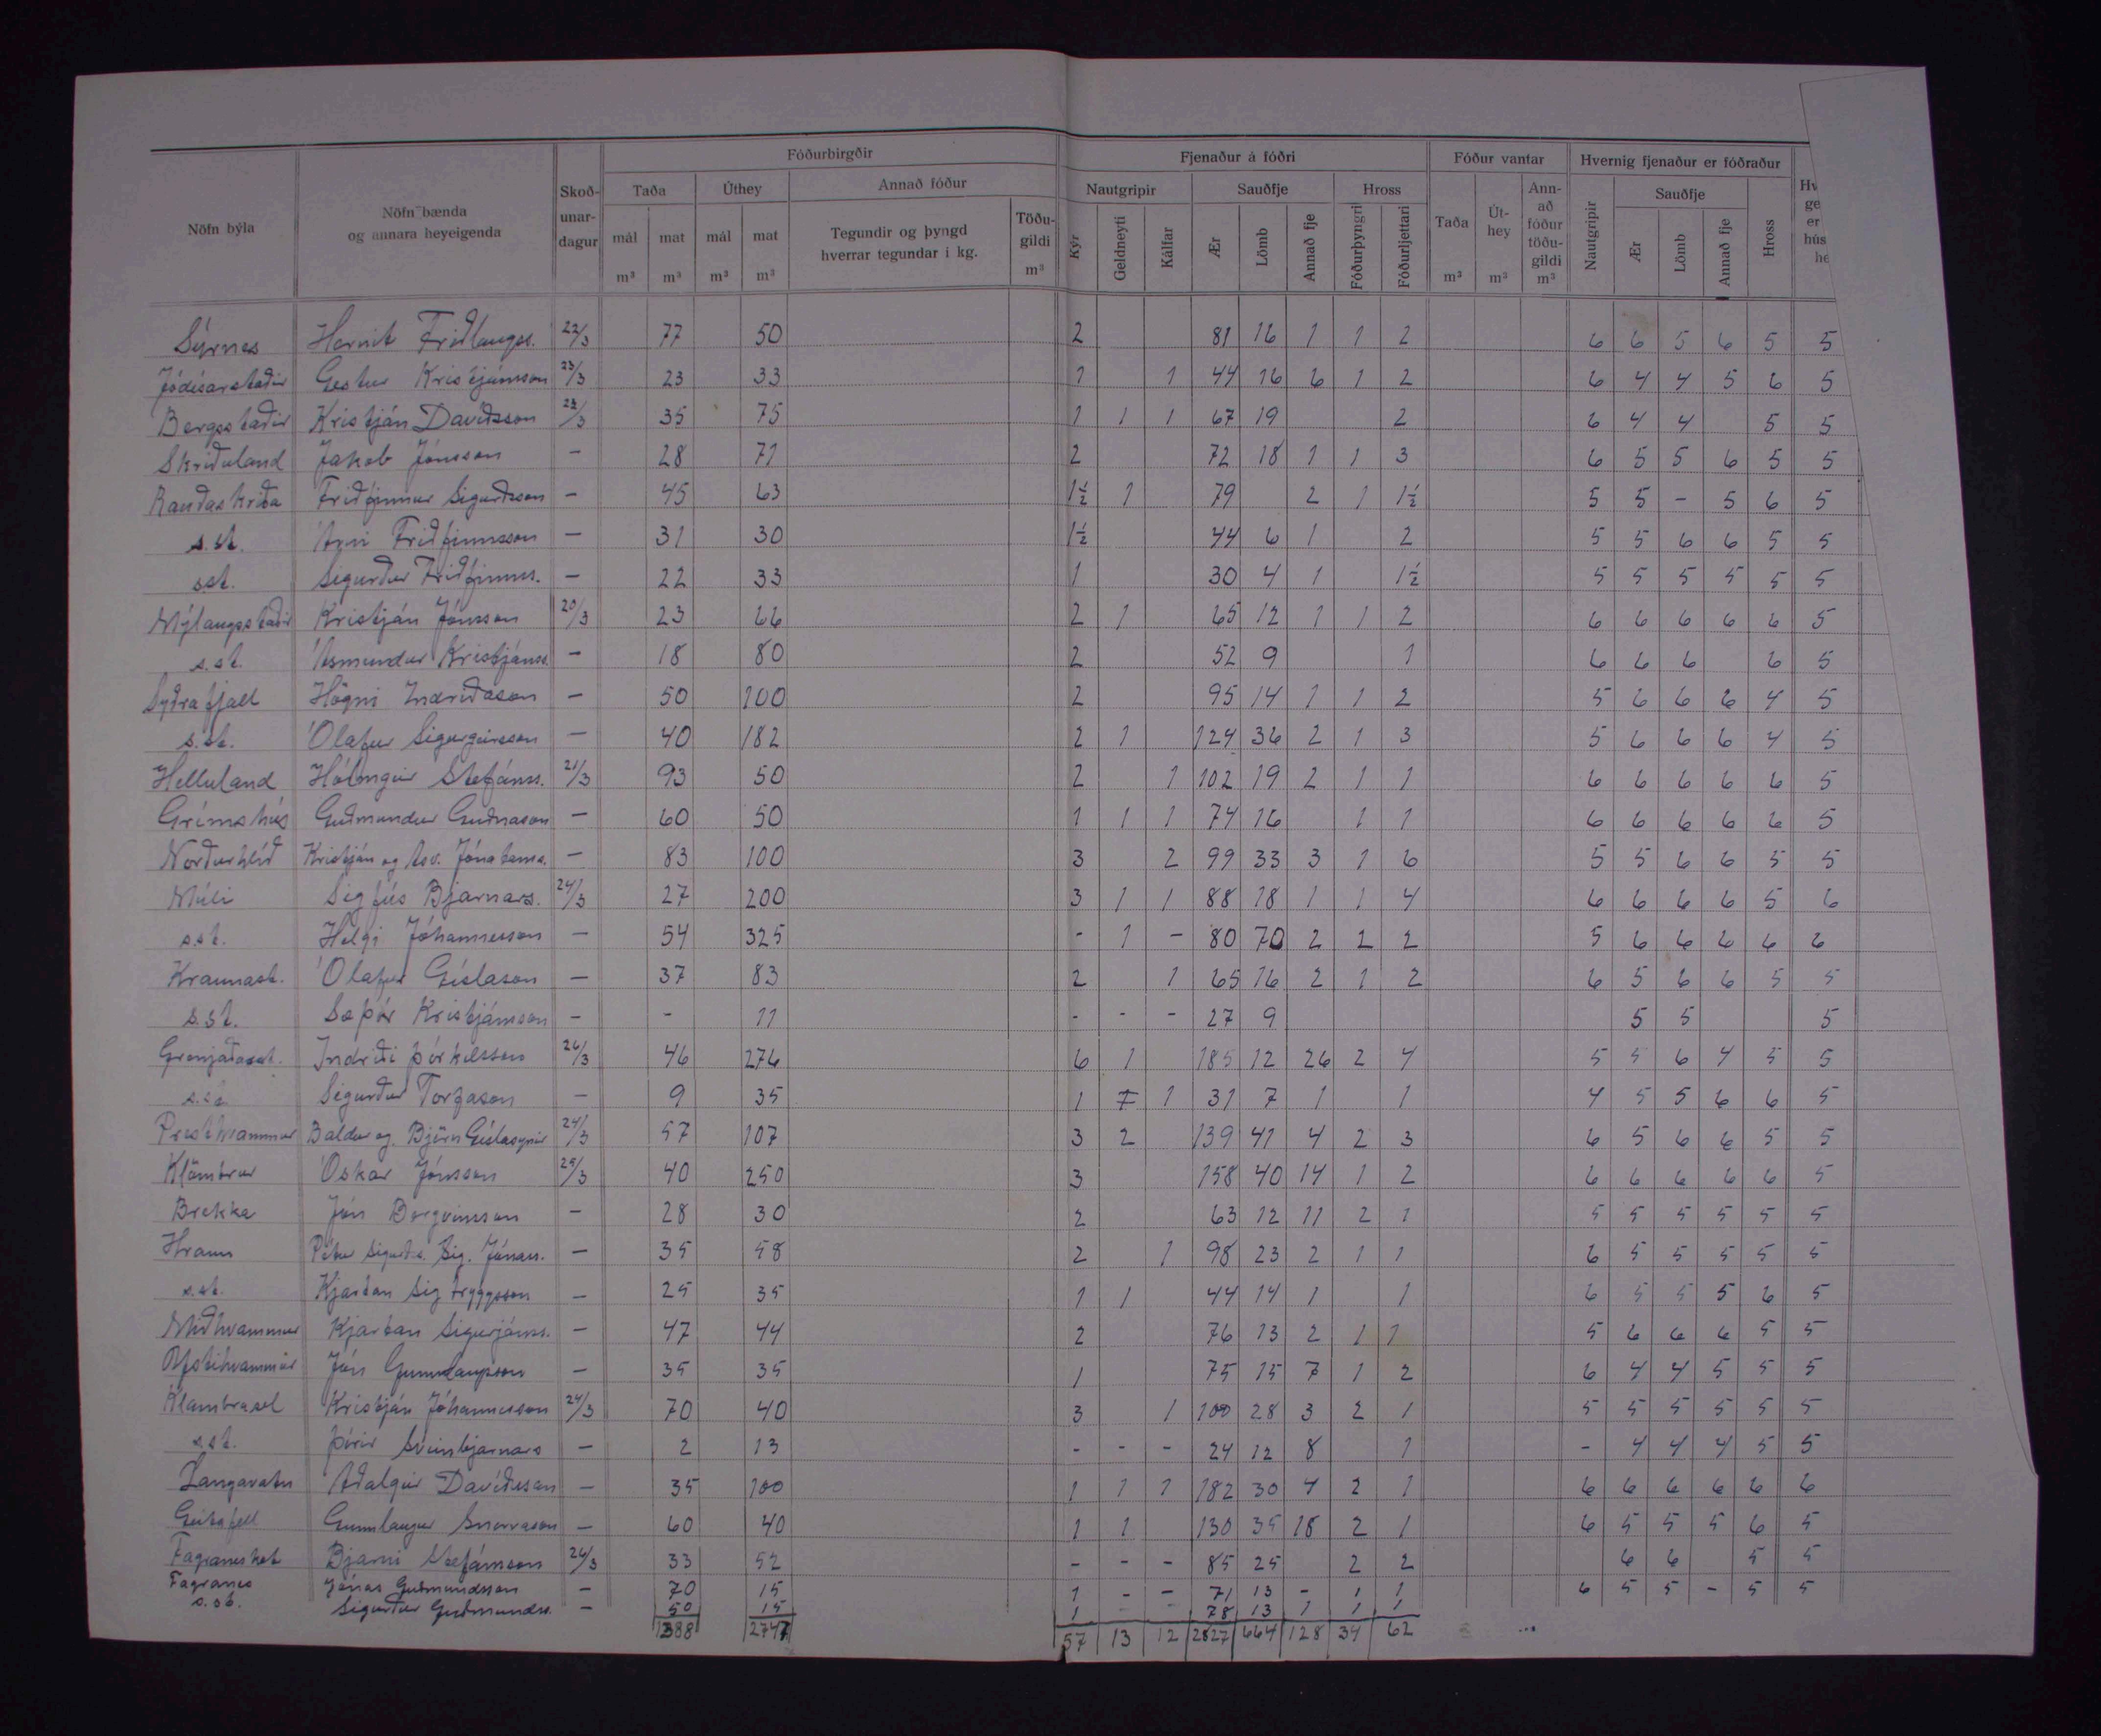 Fóðurbirgðir Fjenaður á fóðri Fóður vantar Hvernig fjenaður er fóðraður
Nöfn býla Nöfn bænda og annara heyeigenda Skoðunardagur Taða Úthey Annað fóður Nautgripir Sauðfje Hross Taða Úthey Annað fóður töðugildi m³ Nautgripir Sauðfje Hross
mál m³ mat m³ mál m³ mat m³ Tegundir og þyngd hverrar tegundar í kg. Töðugildi m³ Kýr Geldneyti Kálfar Ær Lömb Annað fje Fóðurþyngri Fóðurljettari m³ m³ Ær Lömb Annað fje
Sýrnes Hernit Friðlaugss. 23/3 77 50 2 81 16 1 1 2 6 6 5 6 5 5
Jódísarstaðir Gestur Kristjánsson 23/3 23 33 1 1 44 16 6 1 2 6 4 4 5 6 5
Bergsstaðir Kristján Davíðsson 23/3 35 75 1 1 1 67 19 2 6 4 4 5 5
Skriðuland Jakob Jónsson - 28 71 2 72 18 1 1 3 6 5 5 6 5 5
Rauðaskriða Friðfinnur Sigurðsson - 45 63 1½ 1 79 2 1 1½ 5 5 - 5 6 5
s.st. Árni Friðfinnsson - 31 30 1½ 44 6 1 2 5 5 6 6 5 5
s.st. Sigurður Friðfinnss. - 22 33 1 30 4 1 1½ 5 5 5 5 5 5
Mýlaugsstaðir Kristján Jónsson 20/3 23 66 2 1 65 12 1 1 2 6 6 6 6 6 5
s.st. Ásmundur Kristjánss. - 18 80 2 52 9 1 6 6 6 6 5
Syðrafjall Högni Indriðason - 50 100 2 95 14 1 1 2 5 6 6 6 4 5
s.st. Ólafur Sigurgeirsson - 40 182 2 1 124 36 2 1 3 5 6 6 6 4 5
Helluland Hólmgeir Stefánss. 21/3 93 50 2 1 102 19 2 1 1 6 6 6 6 6 5
Grímshús Guðmundur Guðnason - 60 50 1 1 1 74 16 1 1 6 6 6 6 6 5
Norðurhlíð Kristján og Ásv. Jónatanss. - 83 100 3 2 99 33 3 1 6 5 5 6 6 5 5
Múli Sigfús Bjarnars. 24/3 27 200 3 1 1 88 18 1 1 4 6 6 6 6 5 6
s.st. Helgi Jóhannesson - 54 325 - 1 - 80 70 2 2 2 5 6 6 6 6 6
Kraunast. Ólafur Gíslason - 37 83 2 1 65 16 2 1 2 6 5 6 6 5 5
s.st. Sæþór Kristjánsson - - 11 - - - 27 9 5 5 5
Grenjaðarst. Indriði Þórkelsson 26/3 46 276 6 1 185 12 26 2 4 5 5 6 4 5 5
s.st. Sigurður Torfason - 9 35 1 1 31 7 1 1 4 5 5 6 6 5
Presthvammur Baldur og Björn Gíslasynir 24/3 57 107 3 2 139 41 4 2 3 6 5 6 6 5 5
Klömbrur Óskar Jónsson 25/3 40 250 3 158 40 14 1 2 6 6 6 6 6 5
Brekka Jón Bergvinsson - 28 30 2 63 12 11 2 1 5 5 5 5 5 5
Hraun Pétur Sigurðs. Sig. Jónass. - 35 58 2 1 98 23 2 1 1 6 5 5 5 5 5
s.st. Kjartan Sigtryggsson - 25 35 1 1 44 14 1 1 6 5 5 5 6 5
Miðhvammur Kjartan Sigurjónss. - 47 44 2 76 13 2 1 1 5 6 6 6 5 5
Ystihvammur Jón Gunnlaugsson - 35 35 1 75 15 7 1 2 6 4 4 5 5 5
Klambrasel Kristján Jóhannesson 24/3 70 40 3 1 100 28 3 2 1 5 5 5 5 5 5
s.st. Þórir Sveinbjarnars - 2 13 - - - 24 12 8 1 - 4 4 4 5 5
Langavatn Aðalgeir Davíðsson - 35 100 1 1 1 182 30 4 2 1 6 6 6 6 6 6
Geitafell Gunnlaugur Snorrason - 60 40 1 1 130 35 18 2 1 6 5 5 5 6 5
Fagraneskot Bjarni Stefánsson 26/3 33 52 - - - 85 25 2 2 6 6 5 5
Fagranes Jónas Guðmundsson - 70 15 1 - - 71 13 - 1 1 6 5 5 - 5 5
s.st. Sigurður Guðmundss. - 50 15 1 - - 78 13 1 1 1
1388 2747 57 13 12 2827 664 128 34 62